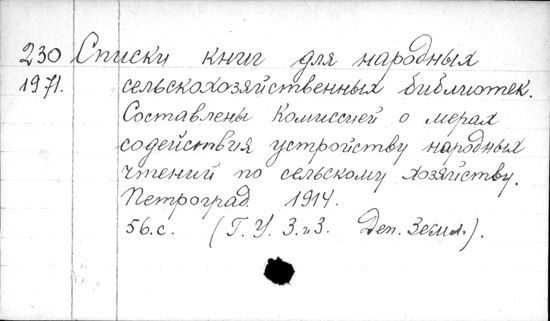 230 Списки книг для народных
1971. сельскохозяйственных библиотек.
Составлены Комиссией о мерах
содействия устройству народных
чтений по сельскому хозяйству.
Петроград 1914.
56.с. (Г. У. З. и З. Деп. Земл.).